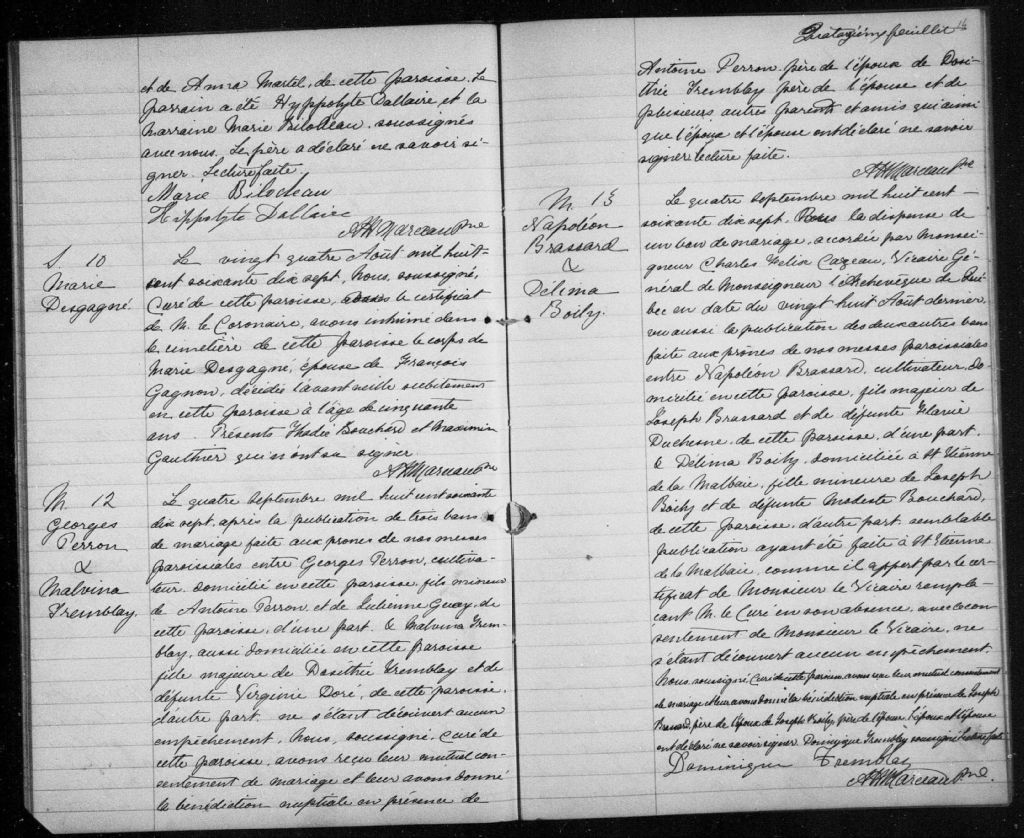 et de Anna Martel, de cette paroisse. Le
parrain a été Hyppolyte Dallaire, et la
marraine Marie Bilodeau, soussignés
avec nous. Le père a déclaré ne savoir si-
gner. Lecture faite.
Marie Bilodeau
Hippolyte Dallaire
AHMarceau Ptre
S. 10
Marie
Desgagné.
Le vingt quatre Août mil huit-
cent soixante dix sept, Nous, soussigné,
Curé de cette paroisse, le certificat
de M. le Coronaire, avons inhumé dans
le cimetière de cette paroisse le corps de
Marie Desgagné, épouse de François
Gagnon, décédée l'avant veille subitement
en cette paroisse à l'âge de cinquante
ans. Présents Thadée Bouchard et Maximin
Gauthier qui n'ont su signer.
AHMarceau Ptre
M. 12
Georges
Perron
&
Malvina
Tremblay.
Le quatre Septembre mil huit cent soixante
dix sept, après la publication de trois bans
de mariage faite aux prones de nos messes
paroissiales entre Georges Perron, cultiva-
teur, domicilié en cette paroisse, fils mineur
de Antoine Perron et de Julienne Guay, de
cette paroisse, d'une part. & Malvina Trem-
blay, aussi domiciliée en cette paroisse
fille majeure de Dosithée Tremblay et de
défunte Virginie Doré, de cette paroisse,
d'autre part, ne s'étant découvert aucun
empêchement, Nous, soussigné, Curé de
cette paroisse, avons reçu leur mutuel con-
sentement de mariage et leur avons donné
la bénédiction nuptiale en présence de
Quatorzième feuillet 14
Antoine Perron père de l'époux de Dosi-
thée Tremblay père de l'épouse et de
plusieurs autres parents et amis qui ainsi
que l'époux et l'épouse ont déclaré ne savoir
signer lecture faite.
AHMarceau Ptre
M. 13
Napoléon
Brassard
&
Délima
Boily.
Le quatre Septembre mil huit cent-
soixante dix sept, la dispense de
un ban de mariage, accordée par Monsei-
gneur Charles Felix Cazeau, Vicaire Gé-
néral de Monseigneur l'Archevêque de Qué-
bec en date du vingt huit Août dernier,
vu aussi la publication des deux autres bans
faite aux prônes de nos messes paroissiales
entre Napoléon Brassard, cultivateur, do-
micilié en cette paroisse, fils majeur de
Joseph Brassard et de défunte Flavie
Duchesne, de cette paroisse, d'une part.
& Délima Boily, domiciliée à St Etienne
de la Malbaie, fille mineure de Joseph
Boily et de défunte Modeste Bouchard,
de cette paroisse, d'autre part, semblable
publication ayant été faite à St Etienne
de la Malbaie, comme il appert par le cer-
tificat de Monsieur le Vicaire rempla-
çant M. le Curé en son absence, avec le con-
sentement de Monsieur le Vicaire, ne
s'étant découvert aucun empêchement.
Nous, soussigné, Curé de cette paroisse, avons reçu leur mutuel consentement
de mariage et leur avons donné la bénédiction nuptiale en présence de Joseph
Brassard, père de l'époux de Joseph Boily, père de l'épouse, l'époux et l'épouse
ont déclaré ne savoir signer. Dominique Tremblay soussigné lecture faite
Dominique Tremblay
AHMarceau Ptre